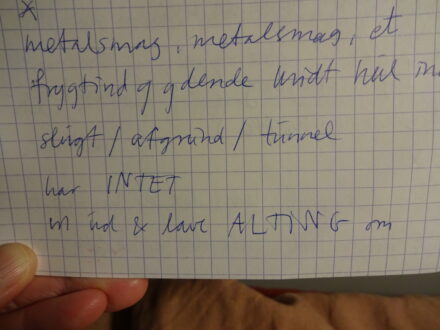 metalsmag, metalsmag, et
frygtindgydende hvidt hul in
slugt / afgrund / tunnel
har INTET
ud & lave ALTING om